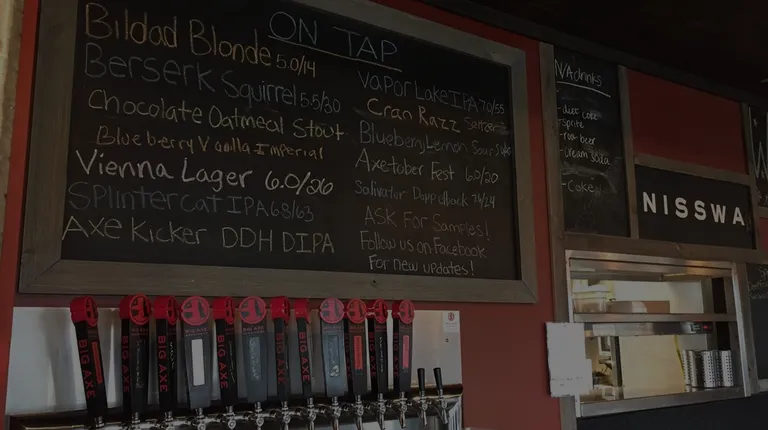 ON TAP
Bildad Blonde 5.0/14
Berserk Squirrel 5.5/30
Chocolate Oatmeal Stout
Blueberry Vanilla Imperial
Vienna Lager 6.0/26
Splintercat IPA 6.8/63
Axe Kicker DDH DIPA
Vapor Lake IPA 7.0/55
Cran Razz Seltzer
Blueberry Lemon Sour
Axetober Fest 6.0/20
Salivator Doppelbock 7.5/24
ASK For Samples!
Follow us on Facebook
For new updates!
N/A drinks
- diet coke
- sprite
- root beer
- cream soda
- Coke
NISSWA
BIG AXE
BIG AXE
BIG AXE
BIG AXE
BIG AXE
BIG AXE
BIG AXE
BIG AXE